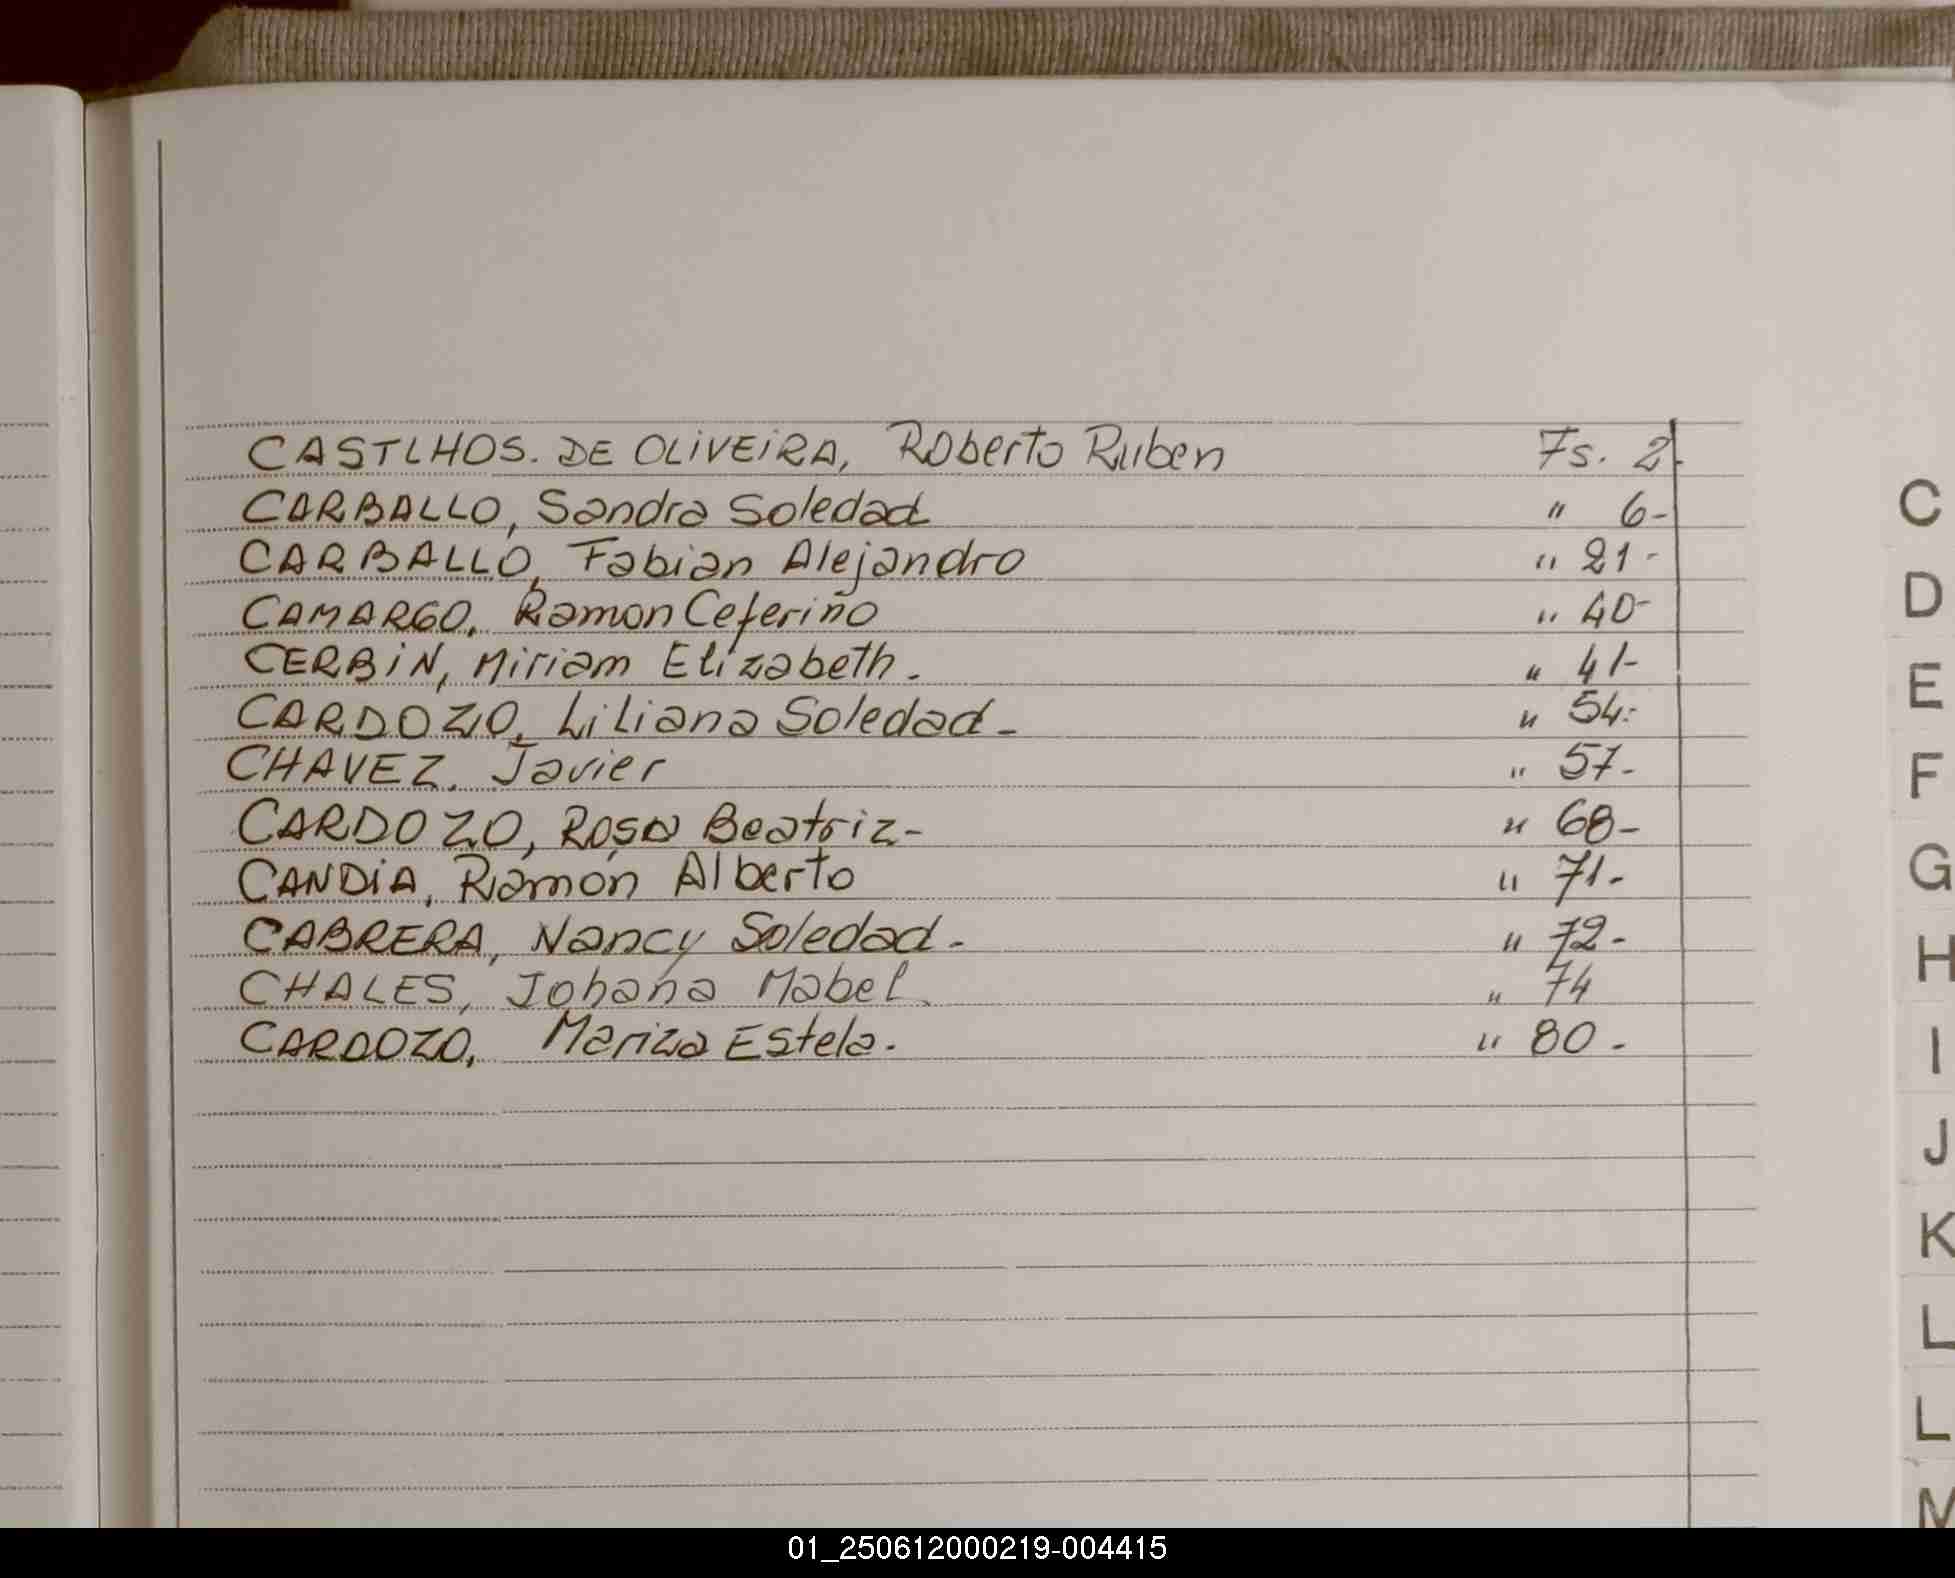 CASTLHOS. DE OLIVEIRA, Roberto Ruben Fs. 2-
CARBALLO, Sandra Soledad " 6-
CARBALLO, Fabian Alejandro " 21-
CAMARGO, Ramon Ceferino " 40-
CERBIN, Miriam Elizabeth. " 41-
CARDOZO, Liliana Soledad- " 54-
CHAVEZ, Javier " 57-
CARDOZO, Rosa Beatriz- " 68-
CANDIA, Ramón Alberto " 71-
CABRERA, Nancy Soledad- " 72-
CHALES, Johana Mabel. " 74
CARDOZO, Mariza Estela- " 80-
C
D
E
F
G
H
I
J
K
L
L
M
01_250612000219-004415